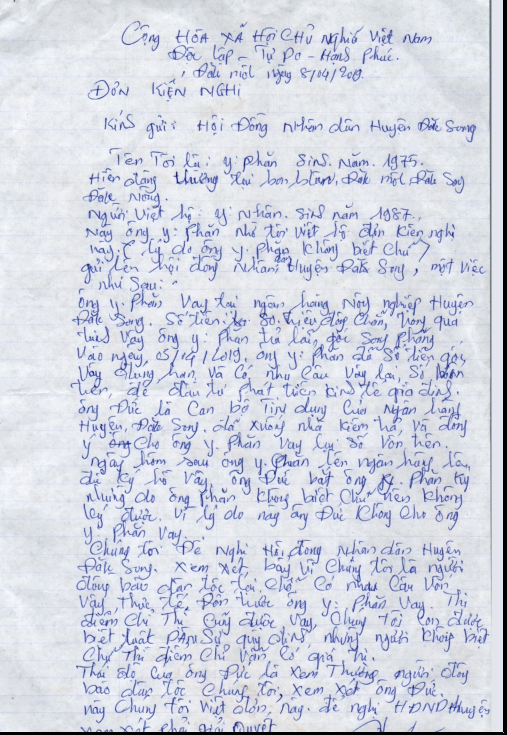 Cộng HÒA XÃ Hội CHỦ Nghĩa Việt Nam
Độc lập - Tự Do - Hạnh Phúc.
Đăk Môl ngày 8/04/2019.
ĐƠN KIẾN NGHị
Kính gửi: Hội Đồng Nhân dân Huyện Đăk Song
Tên Tôi là: y: phăn Sinh. Năm. 1975.
Hiện đang thường tại bon, Đăk môl Đăk Song
Đăk Nông.
Người Việt hộ: y: Nhân. Sinh năm 1987.
Nay ông y: Phăn nhờ tôi Việt hộ đơn Kiến nghị
này (lý do ông y. Phăn không biết chữ)
gửi lên hội đồng Nhân dân Huyện Đăk Song, một việc
như Sau:
ông y. Phăn Vay tại ngân hàng Nông nghiệp Huyện
Đăk Song. Số tiền 80. triệu đồng chẵn, trong quá
Vay ông y: Phăn trả lãi, gốc Song Phẳng
Vào ngày, 05/4/2019. ông y: Phăn đã Số tiền gốc,
Vay đúng hạn, Và Có nhu Cầu Vay lại, Số
tiền, để đầu tư phát triển kinh tế gia đình.
ông Đức là Cán bộ Tín dụng Của Ngân hàng
Huyện, Đăk Song. đã xuống nhà kiểm tra, Và đồng
ý Cho ông y. Phăn Vay lại Số Vốn trên.
ngày hôm sau ông y. Phăn lên ngân hàng làm
ký hồ Vay, ông Đức bắt ông y. Phăn ký
nhưng do ông Phăn không biết Chữ nên không
ký được. Vì lý do này ông Đức Không Cho ông
y: Phăn Vay.
Chúng tôi Đề Nghị Hội đồng Nhân dân Huyện
Đăk Song. Xem Xét bởi Vì Chúng tôi là người
đồng bào dân tộc tại Chỗ Có nhu Cầu Vốn
Vay, thực tế, Đơn trước ông y: Phăn Vay. Thì
điểm Chỉ Thì Cũng được Vay, Chúng Tôi Còn được
biết luật Dân Sự quy định những người Không biết
Chữ Thì điểm Chỉ Vẫn Có giá trị.
Thái độ Của ông Đức là Xem Thường người đồng
bào dân tộc Chúng tôi, Xem Xét ông Đức.
nay Chúng Tôi Viết đơn, này. đề nghị HĐND Huyện
xem xét phải giải quyết